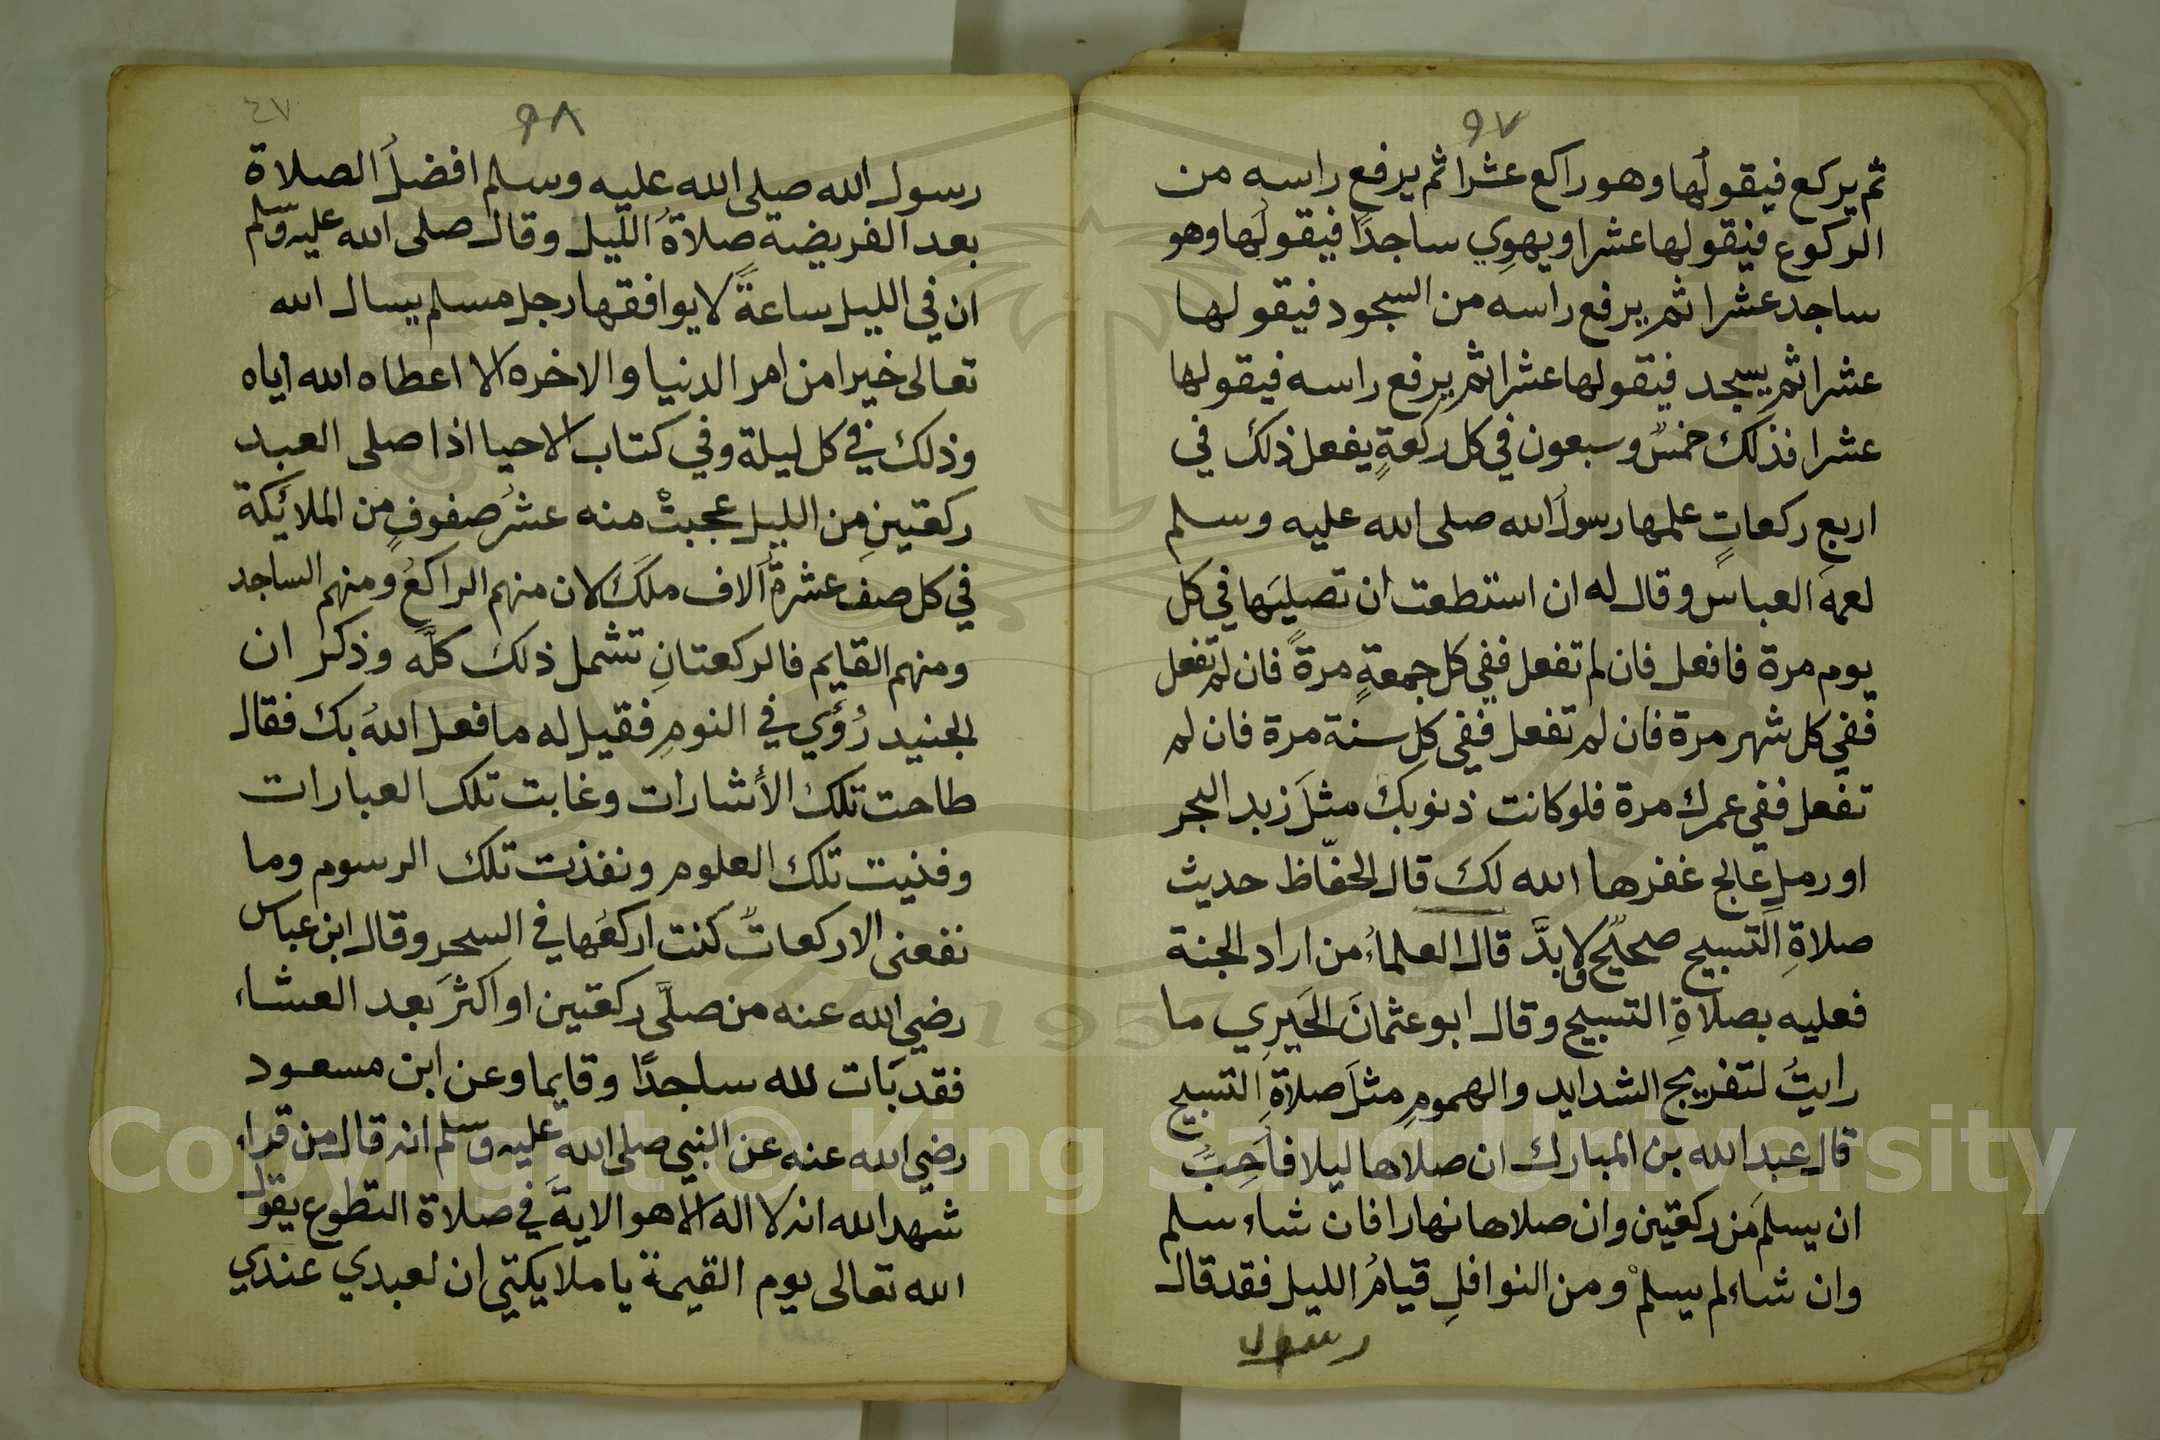 ٩٧
ثم يركع فيقولُها وهو راكع عشرا ثم يرفع راسه من
الركوع فيقولها عشرا ويهوِي ساجدًا فيقولُها وهو
ساجد عشرا ثم يرفع راسه من السجود فيقولها
عشرا ثم يسجد فيقولها عشرا ثم يرفع راسه فيقولها
عشرا فذلك خمسٌ وسبعون في كل ركعةٍ يفعل ذلك في
اربع ركعاتٍ علمها رسولُ الله صلى الله عليه وسلم
لعمه العباس وقال له ان استطعت ان تصليَها في كل
يوم مرة فافعل فان لم تفعل ففي كل جمعةٍ مرةً فان لم تفعل
ففي كل شهر مرة فان لم تفعل ففي كل سنة مرة فان لم
تفعل ففي عمرك مرة فلو كانت ذنوبك مثلَ زبد البحر
او رملِ عالج غفرها الله لك قال الحفّاظ حديث
صلاةِ التسبيح صحيحٌ ولا بدَّ قال العلماءُ من اراد الجنة
فعليه بصلاةِ التسبيح وقال ابو عثمانَ الحَيرِي ما
رايتُ لتفريج الشدايد والهمومِ مثلَ صلاةِ التسبيح
قال عبد الله بن المبارك ان صلاها ليلا فاَحِبُّ
ان يسلمَ من ركعتين وان صلاها نهارا فان شاء سلم
وان شاء لم يسلمْ ومن النوافلِ قيامُ الليل فقد قال
رسول
٩٨
٤٧
رسول الله صلى الله عليه وسلم افضلُ الصلاة
بعد الفريضة صلاةُ اللّيل وقال صلى الله عليه وسلم
ان في الليل ساعةً لا يوافقها رجل مسلم يسال الله
تعالى خيرا من امر الدنيا والاخره الا اعطاه الله اياه
وذلك في كل ليلة وفي كتاب الاحيا اذا صلى العبد
ركعتينِ من الليل عجبتْ منه عشرُ صفوفٍ من الملائكة
في كل صف عشرةُ آلاف ملَكٍ لان منهم الراكعُ ومنهم الساجد
ومنهم القايم فالركعتانِ تشمل ذلك كلَّه وذكر ان
الجنيد رُؤي في النومِ فقيل له ما فعل اللهُ بك فقال
طاحت تلك الأشارات وغابت تلك العبارات
وفنيت تلك العلوم ونفذت تلك الرسوم وما
نفعنى الا ركعاتٌ كنت اركعُها في السحر وقال ابن عباس
رضي الله عنه من صلَّى ركعتين او اكثرَ بعد العشاء
فقد بَات لله ساجدًا وقايما وعن ابن مسعود
رضي الله عنه عن النبي صلى الله عليه وسلم انه قال من قراء
شهد الله انه لا اله الا هو الايةَ في صلاة التطوع يقول
الله تعالى يوم القيمة يا ملايكتي ان لعبدي عندي
Copyright © King Saud University
1957